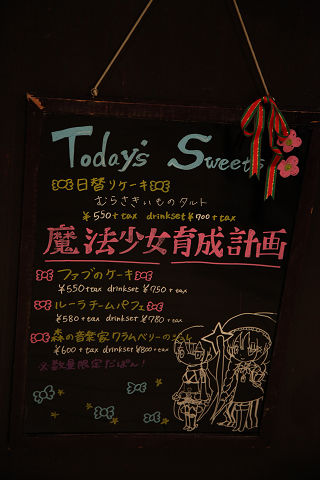 Today's Sweets
日替りケーキ
むらさきいものタルト
¥550+tax drinkset ¥700+tax
魔法少女育成計画
ファブのケーキ
¥550+tax drinkset ¥750+tax
ルーラチームパフェ
¥580+tax drinkset ¥780+tax
森の音楽家クラムベリーの
¥600+tax drinkset ¥800+tax
※数量限定だぽん!